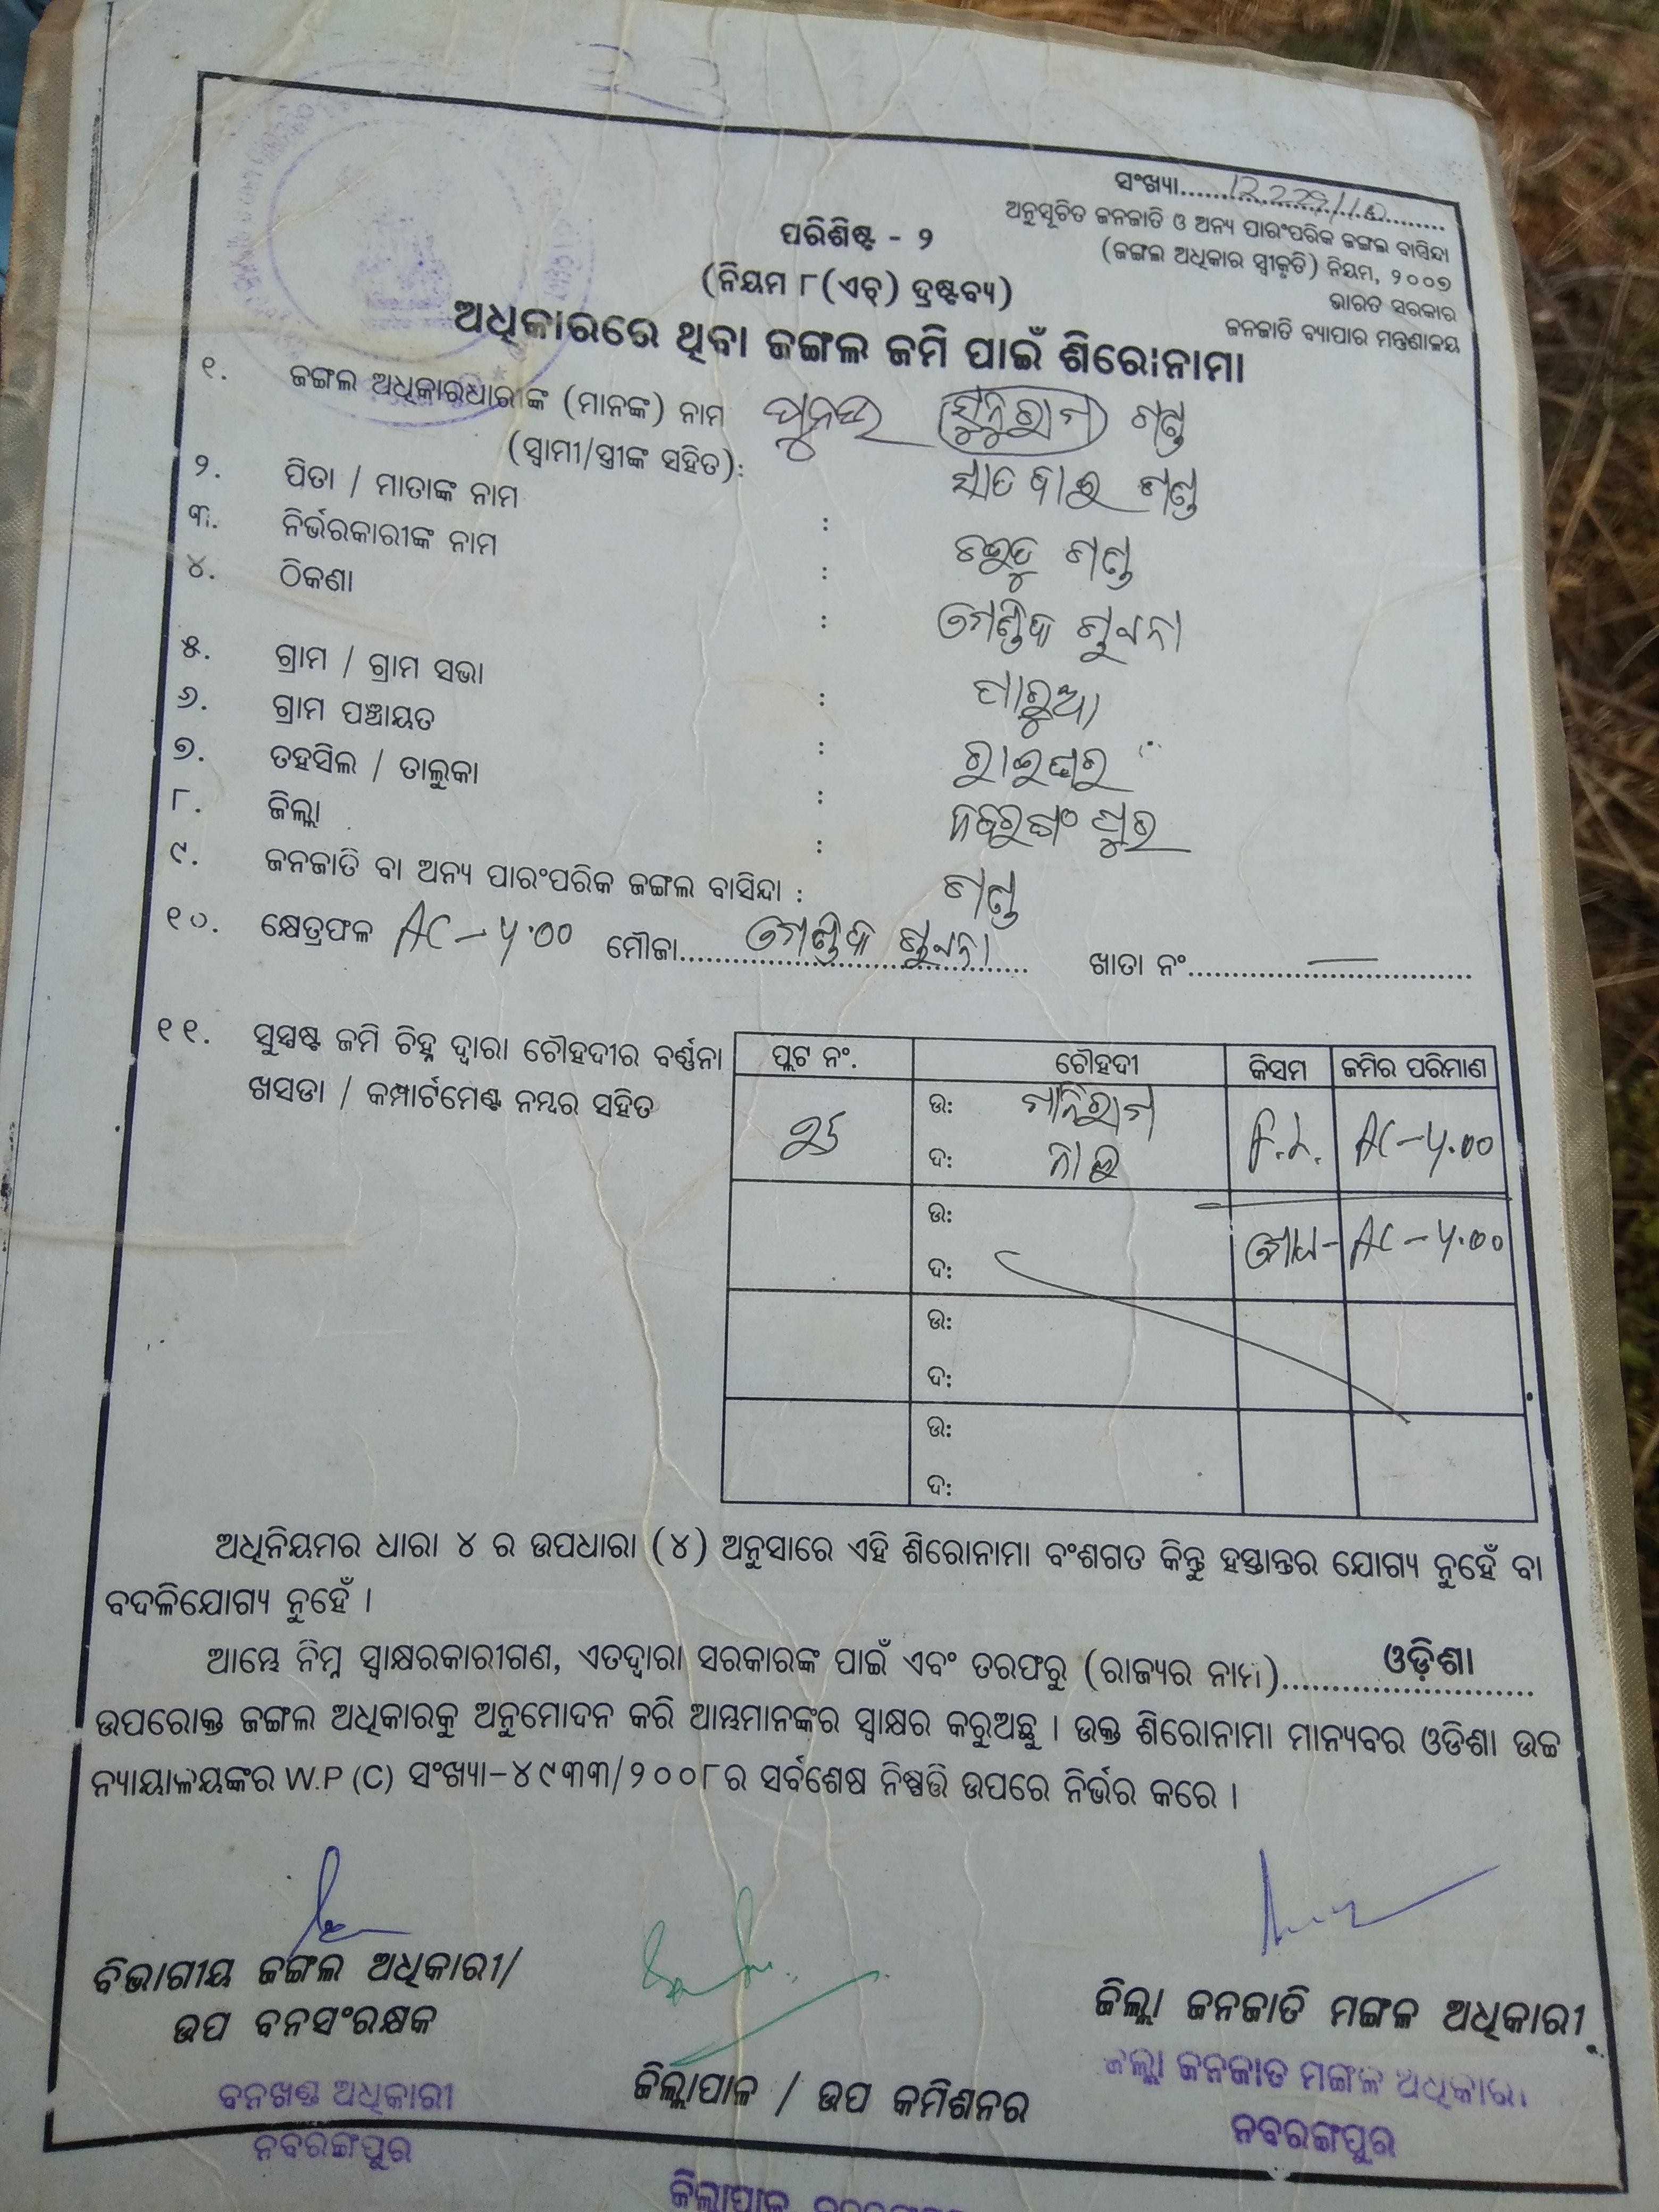 ସଂଖ୍ୟା..............
ଅନୁସୂଚିତ ଜନଜାତି ଓ ଅନ୍ୟ ପାରଂପରିକ ଜଙ୍ଗଲ ବାସିନ୍ଦା
(ଜଙ୍ଗଲ ଅଧିକାର ସ୍ୱୀକୃତି) ନିୟମ, ୨୦୦୭
ଭାରତ ସରକାର
ଜନଜାତି ବ୍ୟାପାର ମନ୍ତ୍ରଣାଳୟ
ପରିଶିଷ୍ଟ - ୨
(ନିୟମ ୮(ଏଚ୍) ଦ୍ରଷ୍ଟବ୍ୟ)
ଅଧିକାରରେ ଥିବା ଜଙ୍ଗଲ ଜମି ପାଇଁ ଶିରୋନାମା
୧. ଜଙ୍ଗଲ ଅଧିକାରଧାରୀଙ୍କ (ମାନଙ୍କ) ନାମ ଗଣ୍ଡ
(ସ୍ୱାମୀ/ସ୍ତ୍ରୀଙ୍କ ସହିତ):
୨. ପିତା / ମାତାଙ୍କ ନାମ : ଗଣ୍ଡ
୩. ନିର୍ଭରକାରୀଙ୍କ ନାମ : ଗଣ୍ଡ
୪. ଠିକଣା :
୫. ଗ୍ରାମ / ଗ୍ରାମ ସଭା :
୬. ଗ୍ରାମ ପଞ୍ଚାୟତ : ପାରୁଆ
୭. ତହସିଲ / ତାଲୁକା : ରାଇଘର
୮. ଜିଲ୍ଲା : ନବରଙ୍ଗପୁର
୯. ଜନଜାତି ବା ଅନ୍ୟ ପାରଂପରିକ ଜଙ୍ଗଲ ବାସିନ୍ଦା : ଗଣ୍ଡ
୧୦. କ୍ଷେତ୍ରଫଳ AC-୪.୦୦ ମୌଜା.............. ଖାତା ନଂ.............. 
୧୧. ସୁସ୍ପଷ୍ଟ ଜମି ଚିହ୍ନ ଦ୍ୱାରା ଚୌହଦୀର ବର୍ଣ୍ଣନା
ଖସଡା / କମ୍ପାର୍ଟମେଣ୍ଟ ନମ୍ବର ସହିତ
ପ୍ଲଟ ନଂ. ଚୌହଦୀ କିସମ ଜମିର ପରିମାଣ
ଉଃ ମନିରାମ
ଦଃ ନାଇ AC-୪.୦୦
ଉଃ
ଦଃ AC-୪.୦୦
ଉଃ
ଦଃ
ଉଃ
ଦଃ
ଅଧିନିୟମର ଧାରା ୪ ର ଉପଧାରା (୪) ଅନୁସାରେ ଏହି ଶିରୋନାମା ବଂଶଗତ କିନ୍ତୁ ହସ୍ତାନ୍ତର ଯୋଗ୍ୟ ନୁହେଁ ବା
ବଦଳିଯୋଗ୍ୟ ନୁହେଁ ।
ଆମ୍ଭେ ନିମ୍ନ ସ୍ୱାକ୍ଷରକାରୀଗଣ, ଏତଦ୍ୱାରା ସରକାରଙ୍କ ପାଇଁ ଏବଂ ତରଫରୁ (ରାଜ୍ୟର ନାମ)......ଓଡ଼ିଶା......
ଉପରୋକ୍ତ ଜଙ୍ଗଲ ଅଧିକାରକୁ ଅନୁମୋଦନ କରି ଆମ୍ଭମାନଙ୍କର ସ୍ୱାକ୍ଷର କରୁଅଛୁ । ଉକ୍ତ ଶିରୋନାମା ମାନ୍ୟବର ଓଡିଶା ଉଚ୍ଚ
ନ୍ୟାୟାଳୟଙ୍କର W.P (C) ସଂଖ୍ୟା-୪୯୩୩/୨୦୦୮ର ସର୍ବଶେଷ ନିଷ୍ପତ୍ତି ଉପରେ ନିର୍ଭର କରେ ।
ବିଭାଗୀୟ ଜଙ୍ଗଲ ଅଧିକାରୀ/
ଉପ ବନସଂରକ୍ଷକ
ବନଖଣ୍ଡ ଅଧିକାରୀ
ନବରଙ୍ଗପୁର
ଜିଲ୍ଲାପାଳ / ଉପ କମିଶନର
ଜିଲ୍ଲାପାଳ
ଜିଲ୍ଲା ଜନଜାତି ମଙ୍ଗଳ ଅଧିକାରୀ
ଜିଲ୍ଲା ଜନଜାତି ମଙ୍ଗଳ ଅଧିକାରୀ
ନବରଙ୍ଗପୁର